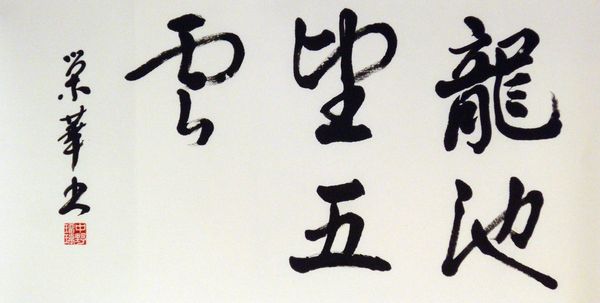 龍池
望五
雲
榮華書